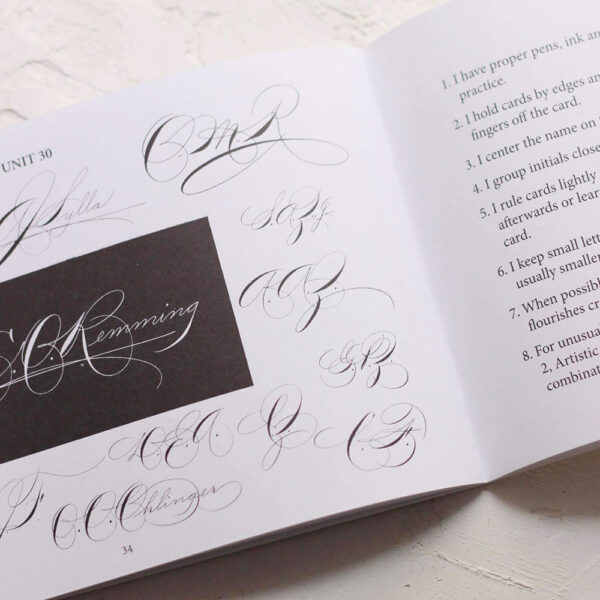 UNIT 30
O.M.R
J Sylla
S.Z. Jr.
S.O. Remming
A.A.Z.
G.P.Z
D.E.A.
C.F.
F.
O.C. Ohlinger
34
1. I have proper pens, ink an
practice.
2. I hold cards by edges an
fingers off the card.
3. I center the name on
4. I group initials close
5. I rule cards lightly
afterwards or lear
card.
6. I keep small lett
usually smaller
7. When possib
flourishes cr
8. For unusua
2, Artistic
combinat